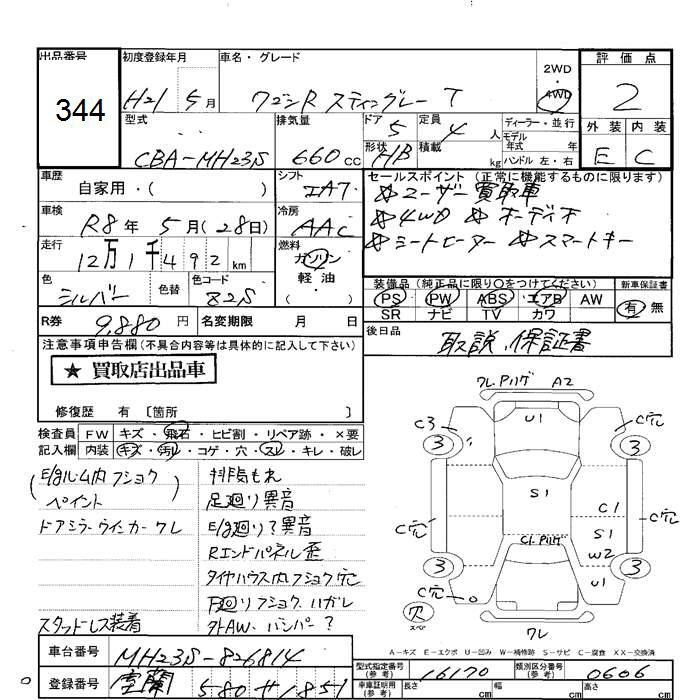 出品番号
344
初度登録年月
H21 5月
車名・グレード
ワゴンR スティングレー T
2WD
・
4WD
評価点
2
外装 内装
E C
型式
CBA-MH23S
排気量
660 CC
ドア 5
定員 4 人
形状 HB
積載 kg
ディーラー・並行
モデル
年式 年
ハンドル 左・右
車歴
自家用・( )
シフト
IAT
車検
R8年 5月(28日)
冷房
AAC
走行
12万1千492 km
燃料
ガソリン
軽油・
( )
色
シルバー
色替
色コード
Z2S
R券 9,880 円
名変期限 月 日
セールスポイント (正常に機能するものに限ります)
☆ユーザー買取車
☆4WD ☆オーディオ
☆シートヒーター ☆スマートキー
装備品 (純正品に限り○をつけてください)
PS PW ABS エアB AW
SR ナビ TV カワ
新車保証書
有・無
後日品
取説、保証書
注意事項申告欄 (不具合内容等は具体的に記入して下さい)
★ 買取店出品車
修復歴 有 〔箇所 〕
検査員 FW キズ・飛石・ヒビ割・リペア跡・×要
記入欄 内装 キズ・汚レ・コゲ・穴・スレ・キレ・破レ
(E/gルーム内フショク
ペイント)
ドアミラーウインカーワレ
スタッドレス装着
排気もれ
足廻り異音
E/g廻り?異音
Rエンドパネル歪
タイヤハウス内フショク穴
下廻りフショク、ハガレ
外AW、バンパー?
ワレ.Pハゲ A2
U1
C3
C穴
3
3
S1
C穴
C1
S1
W2
U1
C穴
C1.Pハゲ
3
3
C穴
穴
スペア
ワレ
A-キズ E-エクボ U-凹み W-補修跡 S-サビ C-腐食 XX-交換済
車台番号
MH23S-826814
登録番号
室蘭 580 サ 1851
型式指定番号
(参考)
16170
類別区分番号
(参考)
0606
車庫証明用
(参考)
長さ cm
幅 cm
高さ cm